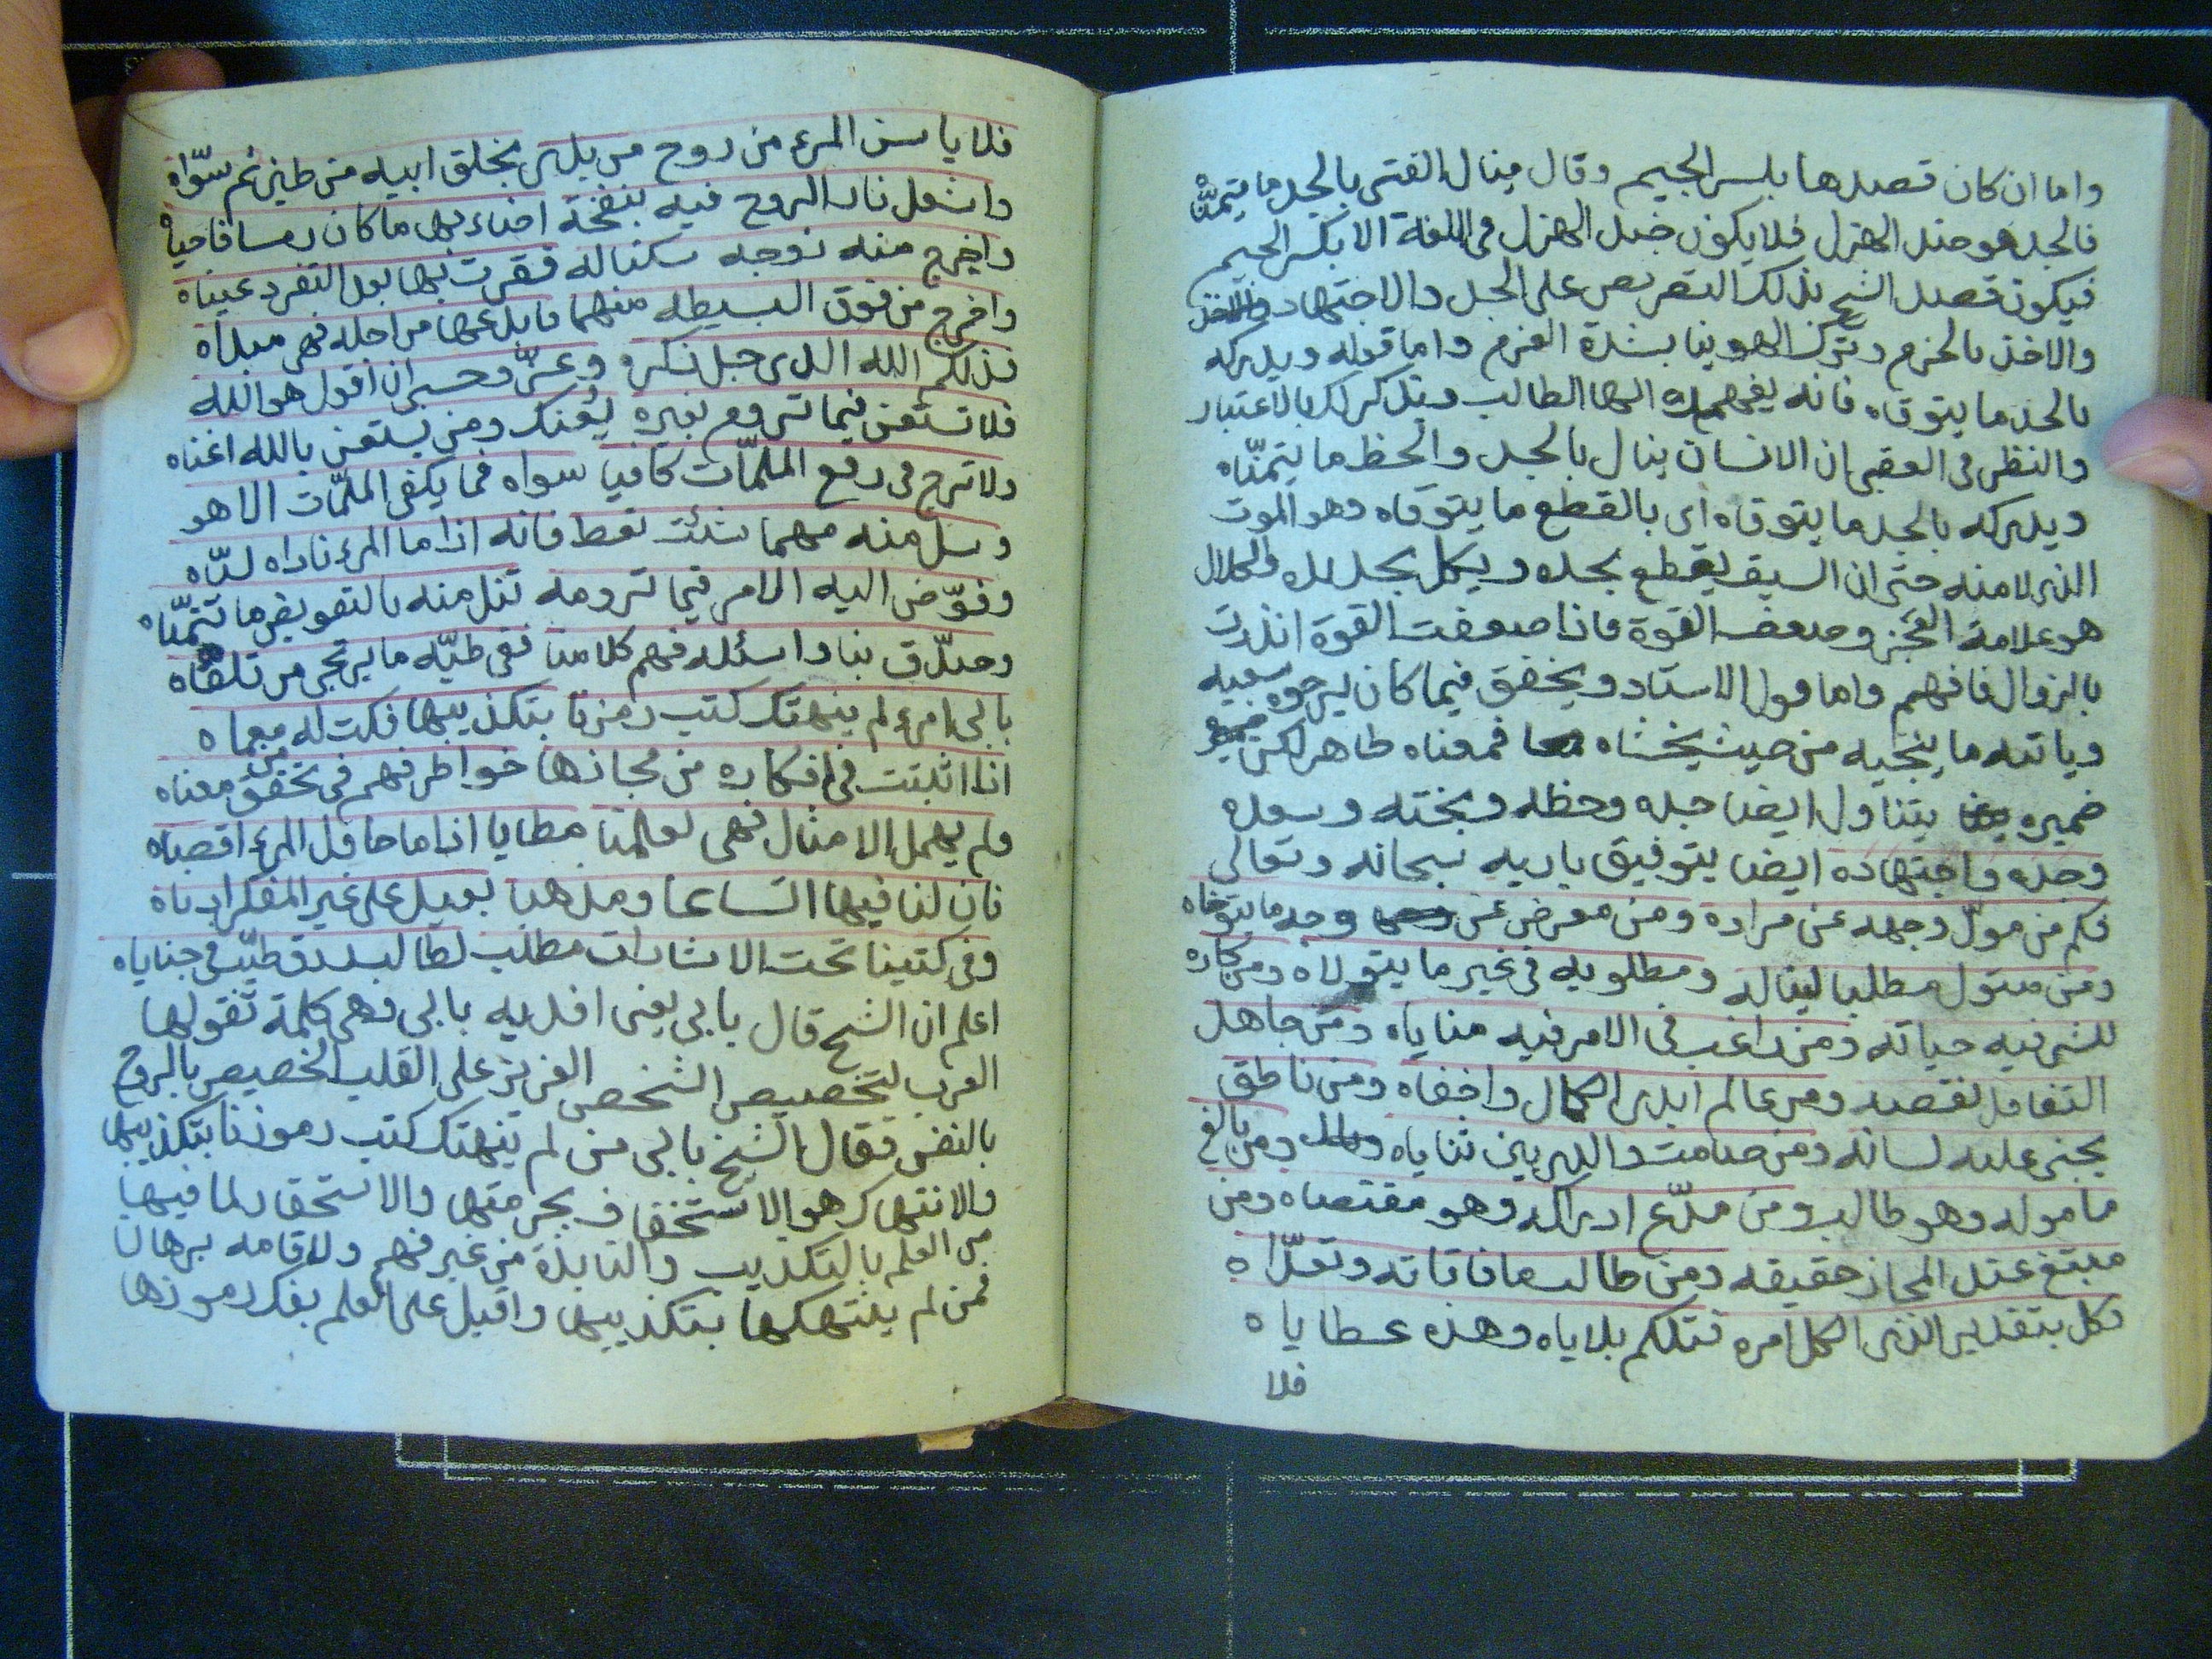 واما ان كان قصدها بكسر الجيم وقال ينال الفتى بالجد ما يتمناه
فالجد هو ضد الهزل فلا يكون ضد الهزل فى اللغة الا بكسر الجيم
فيكون قصد الشيخ بذلك التعريض على الجد والاجتهاد
والاخذ بالحزم وترك الهوينا بشدة العزم واما قوله ويدركه
بالحد ما يتوقاه فانه يفهمك ايها الطالب ويذكرك بالاعتبار
والنظر فى العقبى ان الانسان ينال بالجد والحظ ما يتمنّاه
ويدركه بالحد ما يتوقاه اى بالقطع ما يتوقاه وهو الموت
الذى لا منه حتى ان السيف ليقطع بحده ويكل بحده والكلال
هو علامة العجز وضعف القوة فاذا ضعفت القوة انذرت
بالزوال فافهم واما قول الاستاد ويخفق فيما كان يرجوه سعيه
وياتيه ما ينجيه من حيث يخشاه فمعناه ظاهر لكن
ضميره يتناول ايضا جده وحظه وبخته وسعده
وجده واجتهاده ايضا بتوفيق باريه سبحانه وتعالى
فكم من مولّ وجهه عن مراده ومن معرض عن وجه ما يتوخاه
ومن متول مطلبا لينا له ومطلوبه فى غير ما يتولاه ومن كاره
للشى فيه حياته ومن راغب فى الامر فيه مناياه ومن جاهل
التغافل نقصه ومن عالم ابدى الكمال واخفاه ومن ناطق
يجنى عليه لسانه ومن صامت والدر بين ثناياه ومن بالغ
ماموله وهو طالب ومن مدّع ادراكه وهو مقتصاه ومن
مبتغ عند المجاز حقيقه ومن طالب ما فاته وتعدّاه
فكل بتقدير الذى الكل امره فتلكم بلاياه وهذه عطاياه
فلا
فلا ياسن المرء من روح من بدى بخلق ابيه من طين ثم سوّاه
واشعل نار الروح فيه بنفخة اضاء بها ما كان رمسا فاحياه
واخرج منه زوجه سكنا له فقرت بها بعد التفرد عيناه
واخرج من فوق البسيطه منهما فابدعها من اجله فهى مبداه
فذلكم الله الذى جل ذكره وعزّ وحسبى ان اقول هو الله
فلا تستعن فيما تروم بغيره يُعنك ومن يستعن بالله اغناه
ولا ترج فى رفع الملمّات كافيا سواه فما يكفى الملمّات الا هو
وسل منه مهما شئت تعط فانه اذا ما المرء ناداه لبّاه
وفوّض اليه الامر فيما ترومه تنل منه بالتفويض ما تتمنّاه
وصدّق بنا واسئله فهم كلامنا ففى طيّه ما يرتجى من تلقاه
بابى امرء لم ينهتك كتب رمزنا بتكذيبها فكت له معماه
اذا اثبتت فى افكاره من مجازها خواطر فهم فى تحقق معناه
ولم يهمل الامثال فهى لعلمنا مطايا اذا ما حاول المرء اقصاه
فان لنا فيها اتساعا ومذهبا بعيد على غير المفكر ادناه
وفى كتبنا تحت الاشارات مطلب لطالب صدق طيّب فى جناياه
اعلم ان الشيخ قال بابى يعنى افديه بابى وهى كلمة تقولها
العرب لتخصيص الشخص العزيز على القلب الخصيص بالروح
بالنفس فقال الشيخ بابى من لم ينهتك كتب رموزنا بتكذيبها
والانتهاك هو الاستخفاف بحرمتها والاستحقار لما فيها
من العلم بالتكذيب والنابذة من غير فهم ولا قامه برهان
فمن لم ينتهكها بتكذيبها واقبل على العلم بفك رموزها